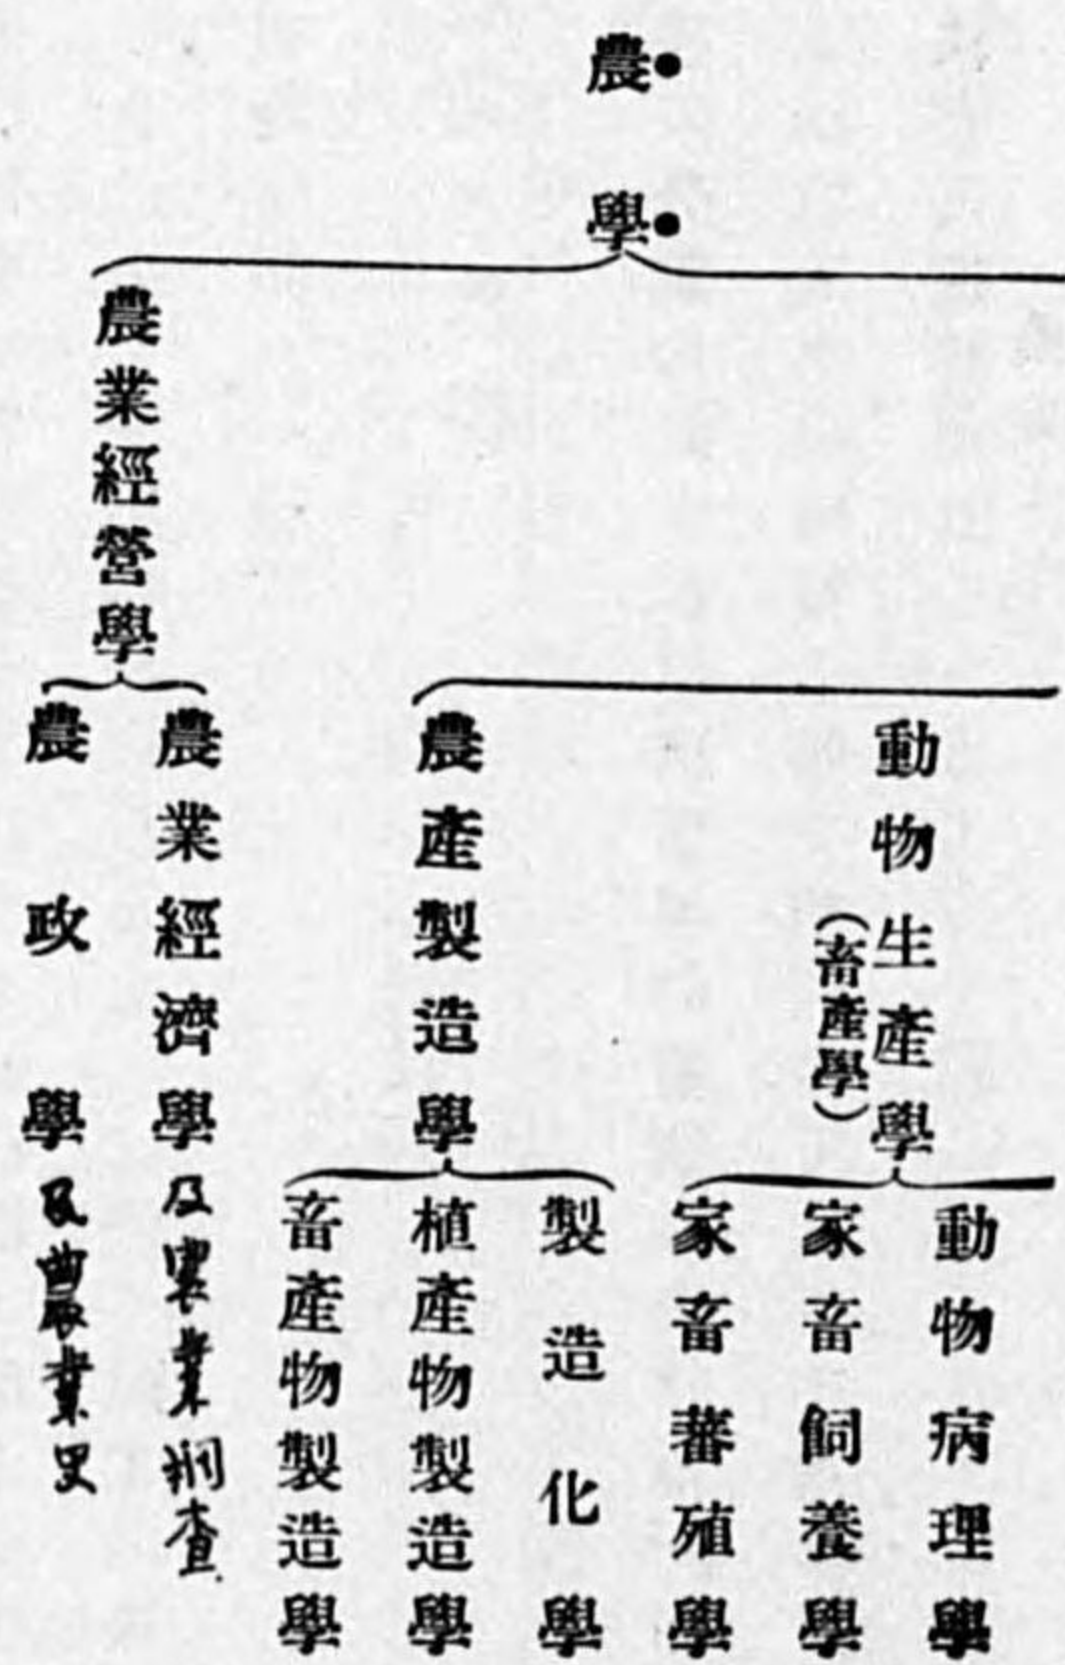 農學
動物生產學
(畜產學)
動物病理學
家畜飼養學
家畜蕃殖學
農產製造學
製造化學
植產物製造學
畜產物製造學
農業經營學
農業經濟學及農業調查
農政學及農業史